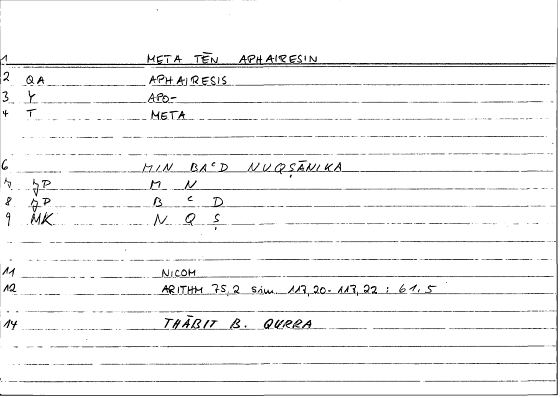 1 META TĒN APHAIRESIN
2 QA APHAIRESIS
3 Y APO-
4 T META
6 MIN BAᶜD NUQṢĀNIKA
7 JP M N
8 JP B ᶜ D
9 MK N Q Ṣ
11 NICOM
12 ARITHM 75,2 sim. 113,20-113,22 : 61.5
14 THĀBIT B. QURRA